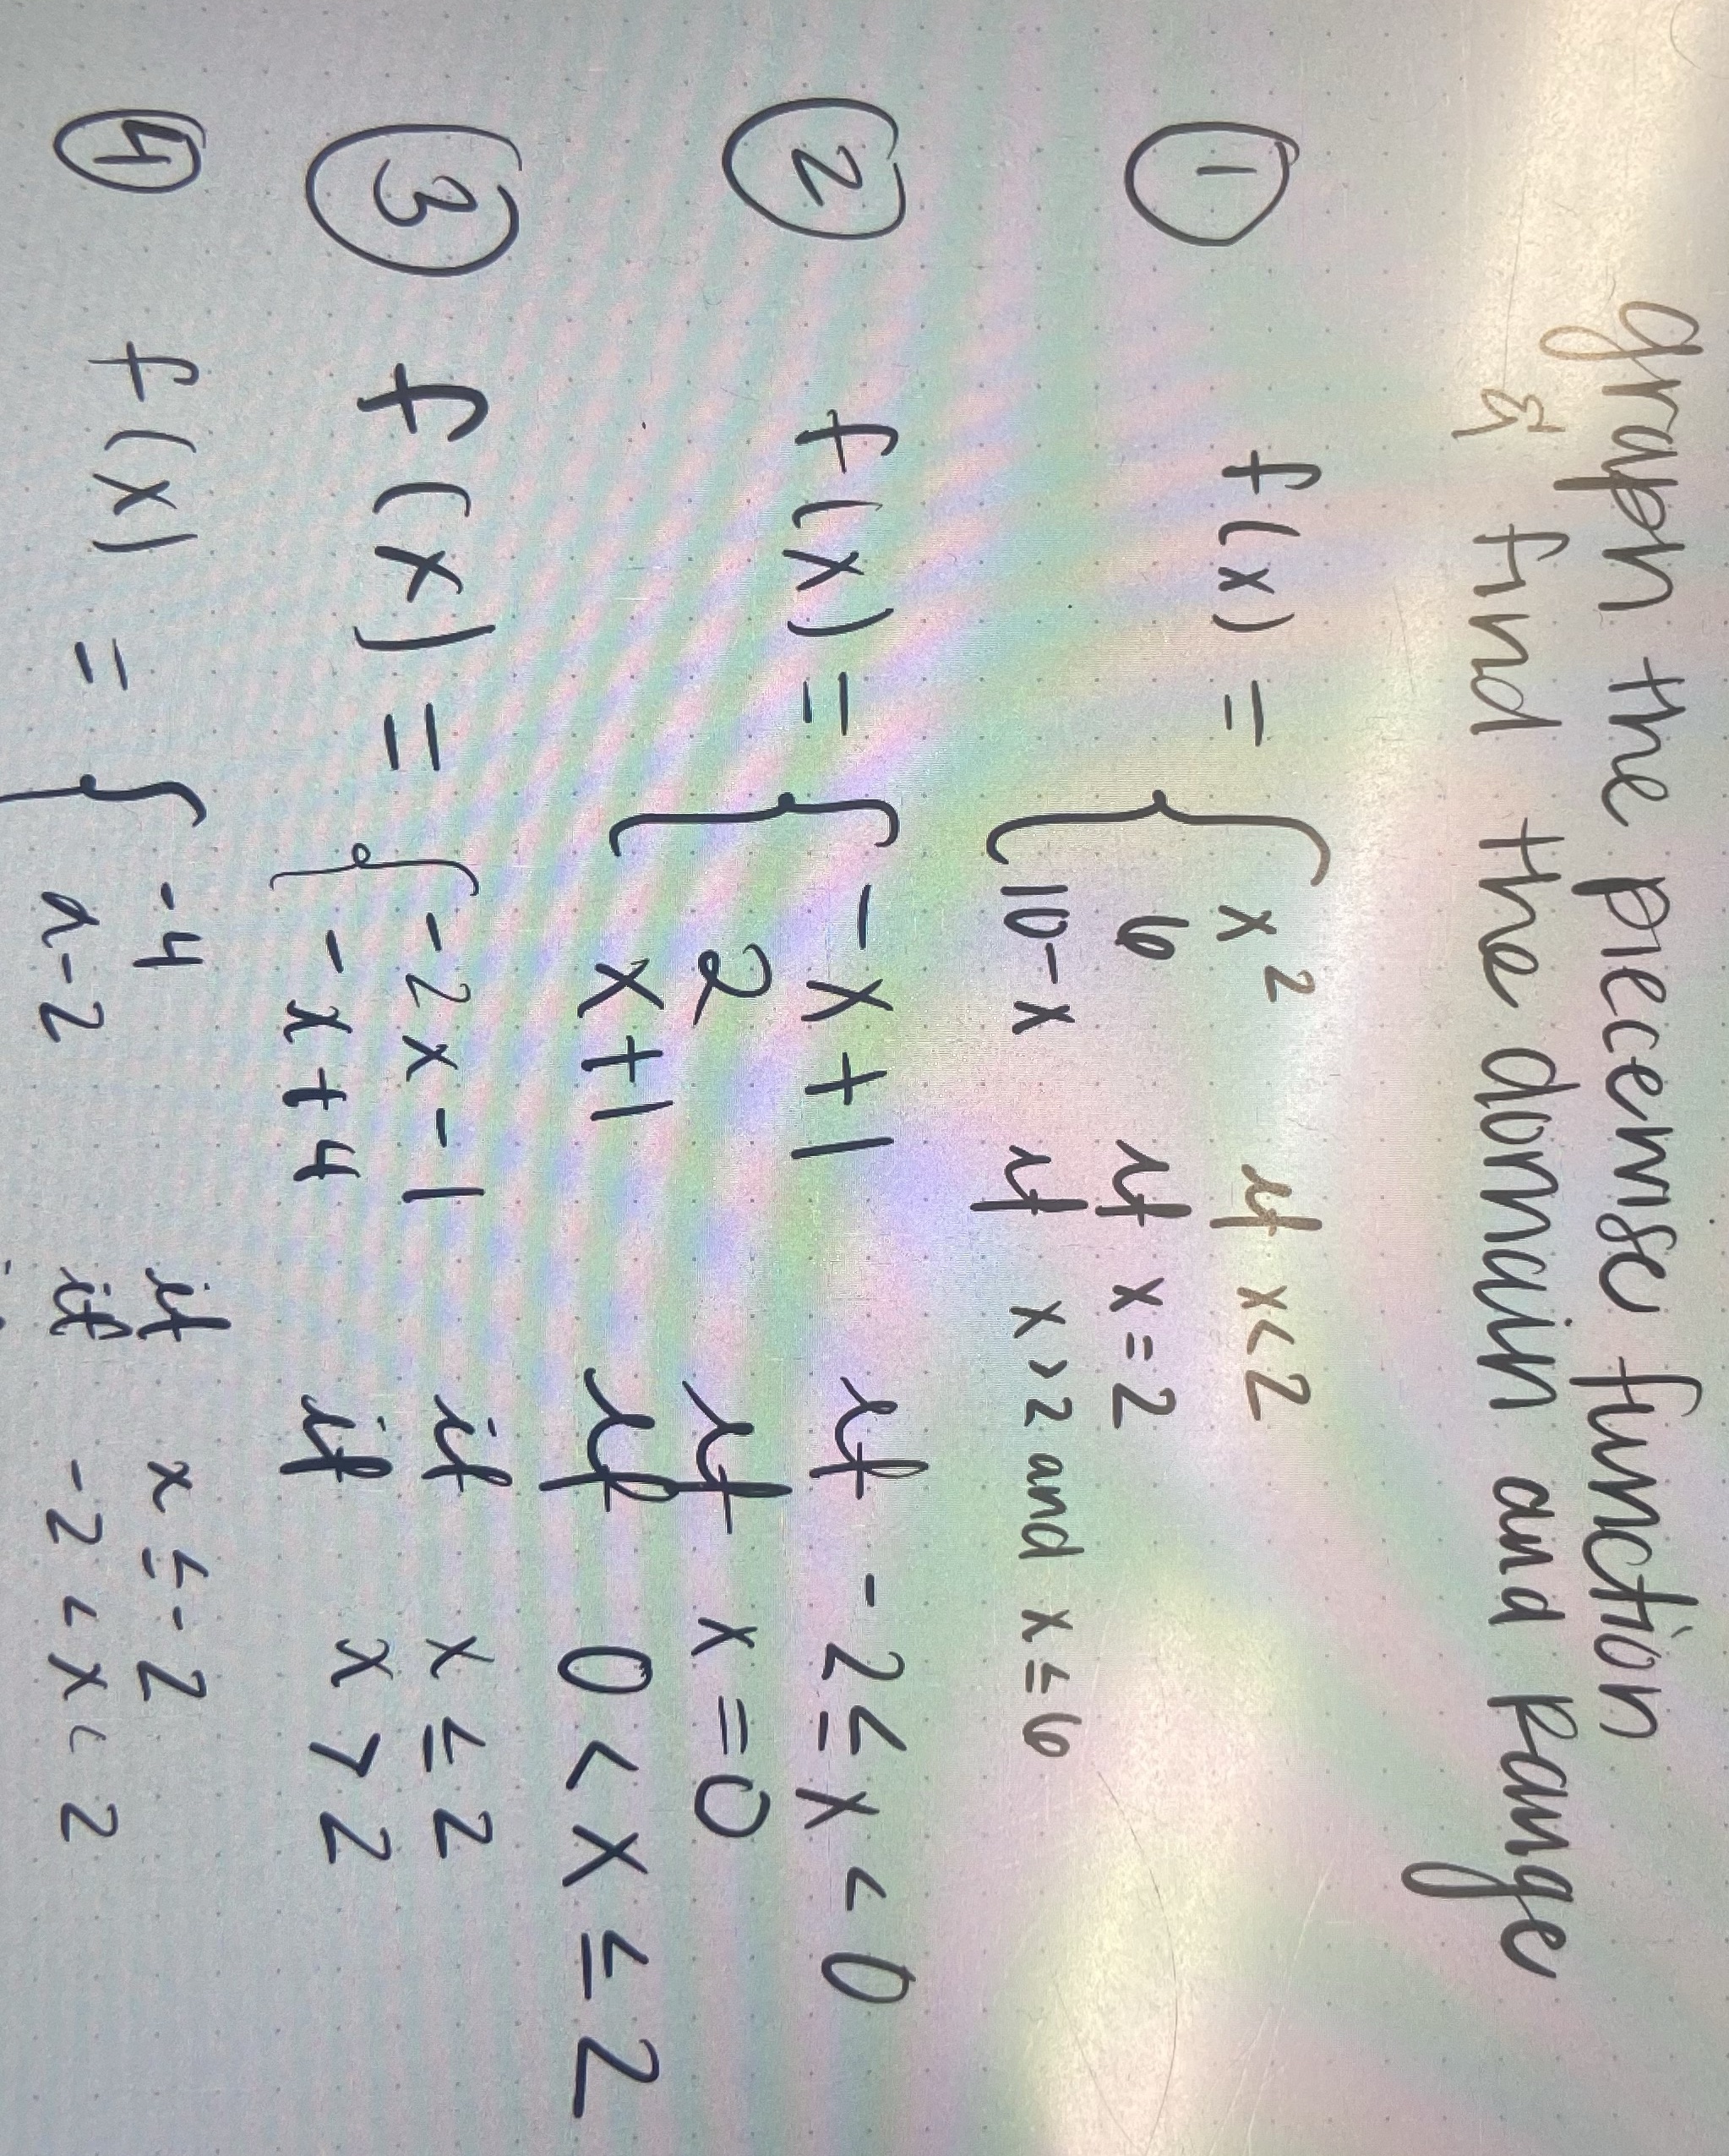 graph the piecewise function
& find the domain and range
① f(x) = { x² if x<2
6 if x=2
10-x if x>2 and x≤6
② f(x) = { -x+1 if -2≤x<0
2 if x=0
x+1 if 0<x≤2
③ f(x) = { -2x-1 if x≤2
-x+4 if x>2
④ f(x) = { -4 if x≤-2
x-2 if -2<x<2